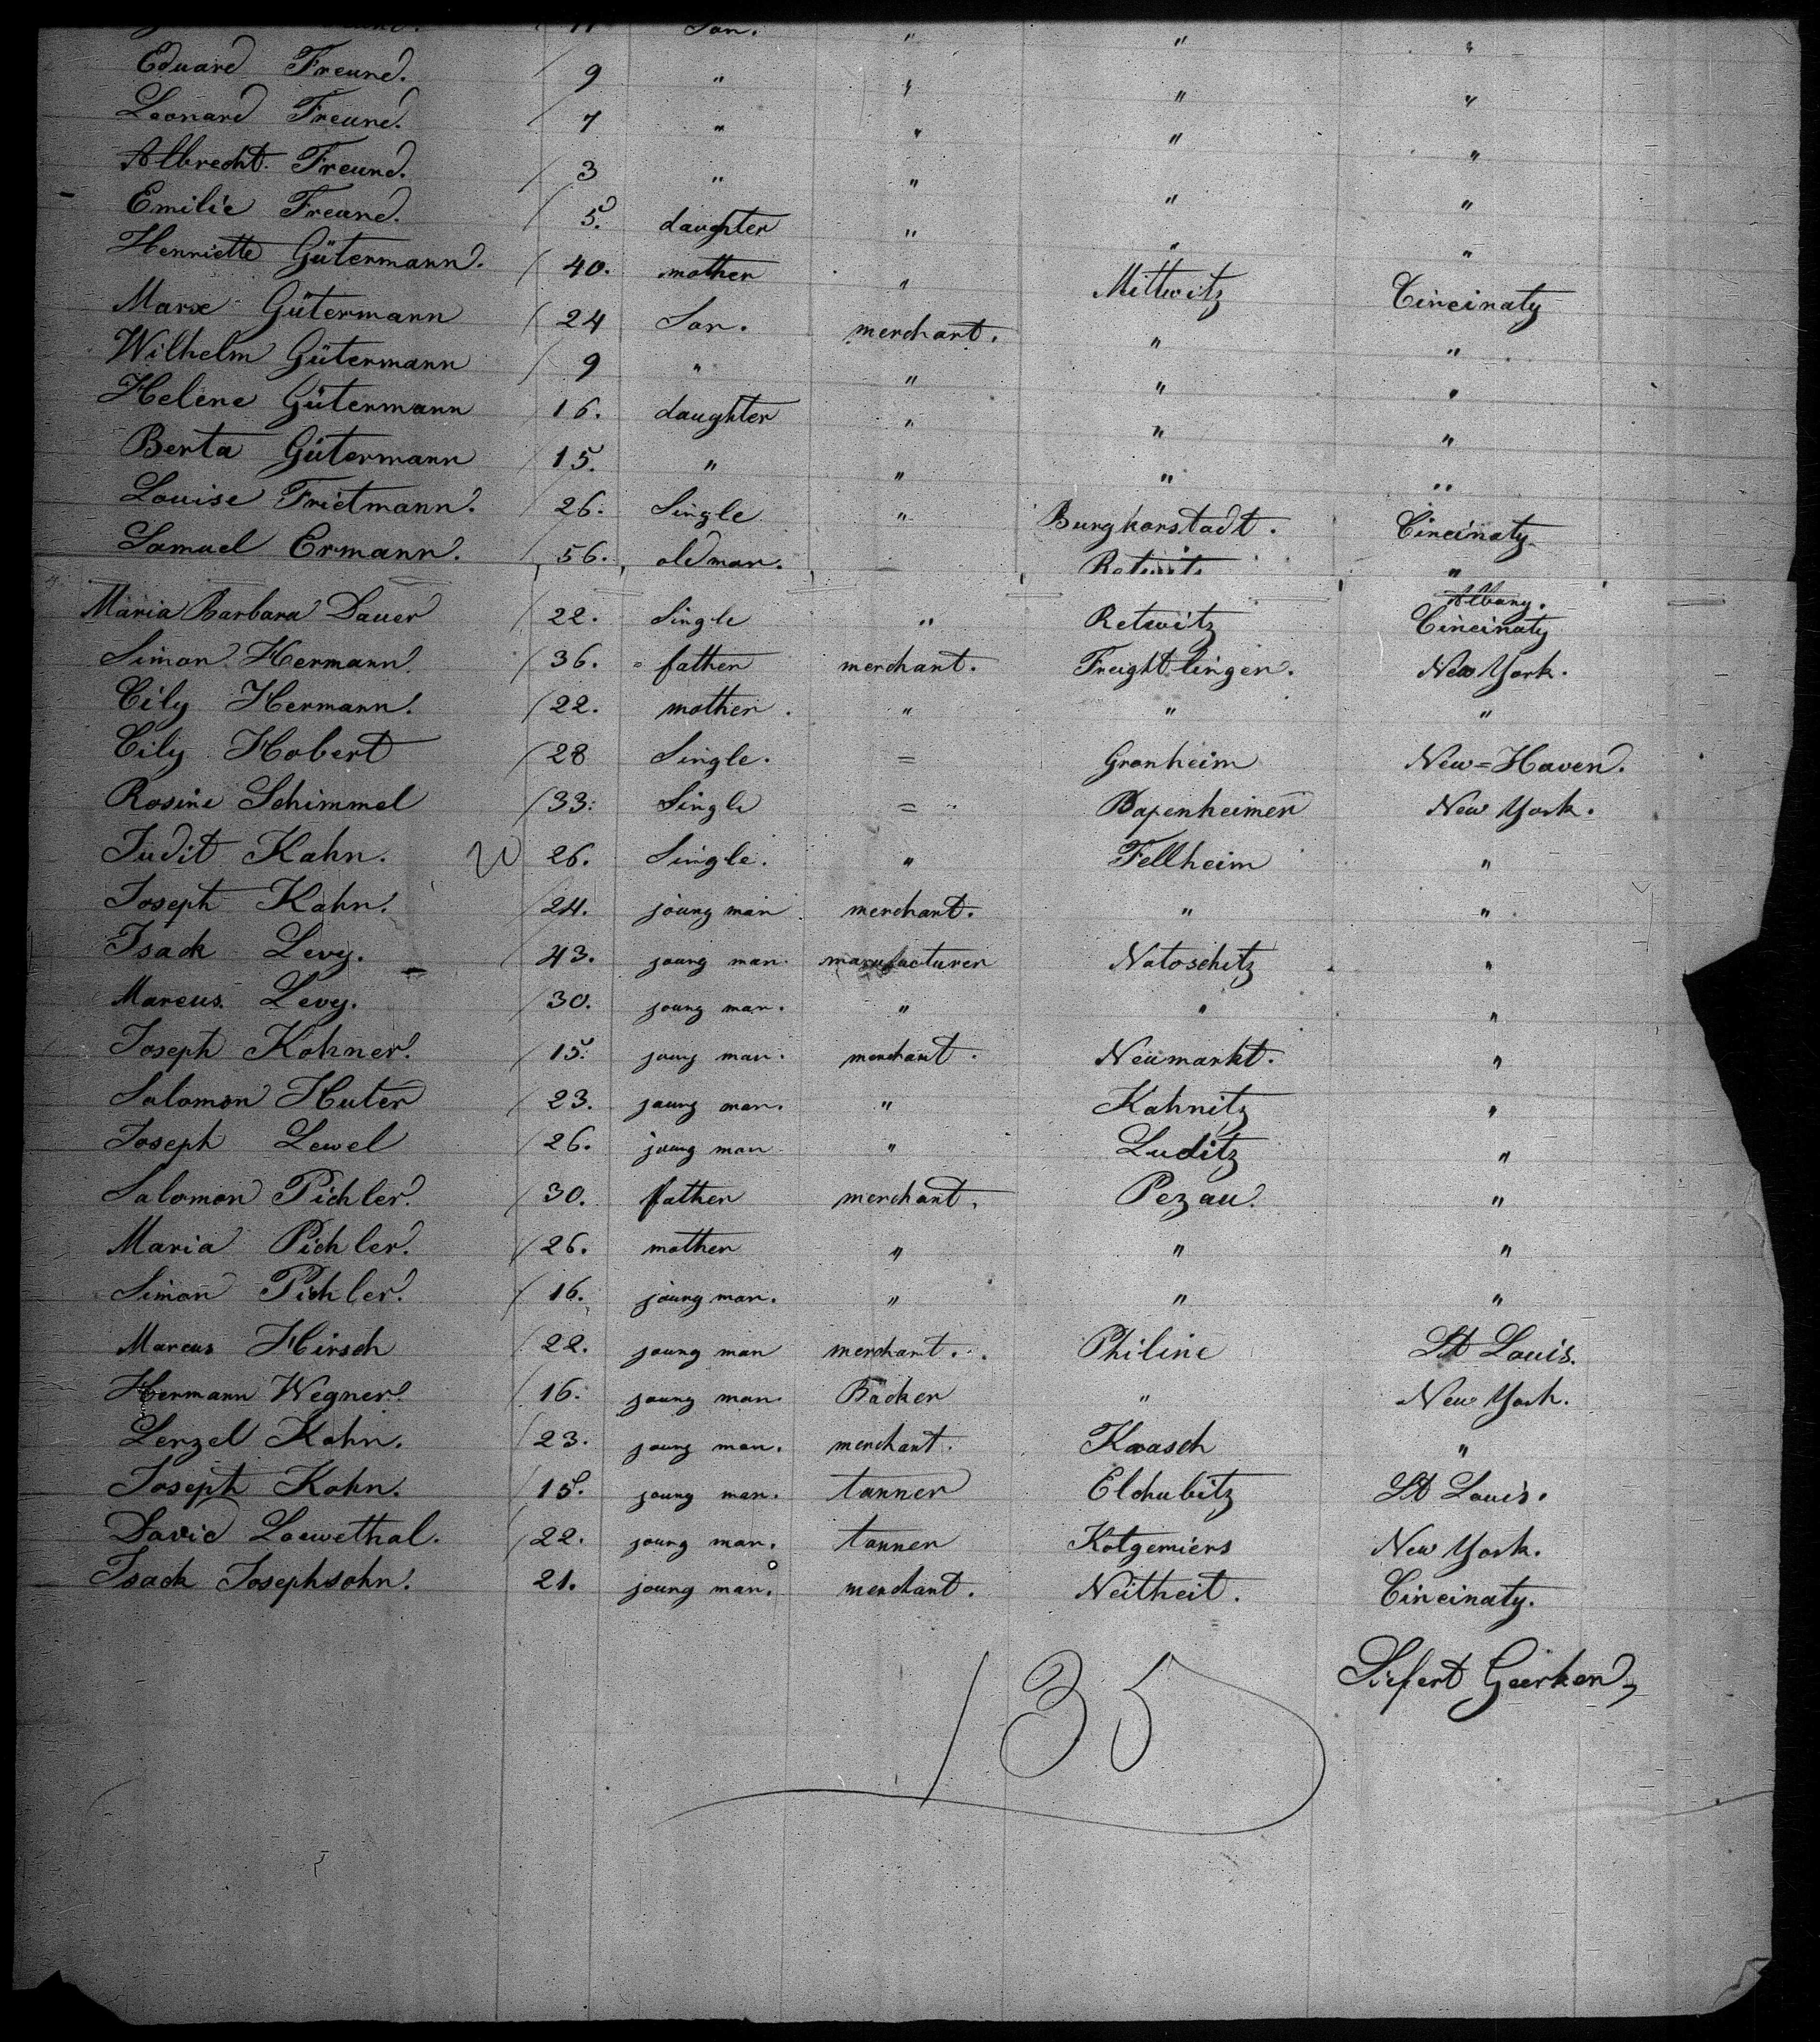 Son. " " "
Eduard Freund. / 9 " " " "
Leonard Freund. / 7 " " " "
Albrecht Freund. / 3 " " " "
Emilie Freund. / 5. daughter " " "
Henriette Gütermann. / 40. mother " Mittwitz Cincinaty
Marx Gütermann / 24 Son. merchant. " "
Wilhelm Gütermann / 9 " " " "
Helene Gütermann / 16. daughter " " "
Berta Gütermann / 15. " " " "
Louise Frietmann. / 26. Single " Burgkonstadt. Cincinaty
Samuel Ermann. / 56. oldman. "
Albany.
Maria Barbara Dauer / 22. Single " Retwitz Cincinaty
Simon Hermann / 36. father merchant. Freightlingen. New York.
Cily Hermann. / 22. mother. " " "
Cily Hobert / 28 Single. = Gronheim New=Haven.
Rosine Schimmel / 33. Single = Bapenheimer New York.
Judit Kahn. 26. Single. " Fellheim "
Joseph Kahn. / 24. joung man merchant. " "
Isack Levy. / 43. joung man. manufacturer Natoschitz "
Marcus Levy. / 30. joung man. " " "
Joseph Kohner. / 15. joung man. merchant. Neumarkt. "
Salomon Huter / 23. joung man. " Kahnitz "
Joseph Lewel / 26. joung man " Luditz "
Salomon Pichler. / 30. father merchant. Pezau. "
Maria Pichler. / 26. mother " " "
Simon Pichler. / 16. joung man. " " "
Marcus Hirsch / 22. joung man merchant. Philine St Louis.
Hermann Wegner. / 16. joung man. Backer " New York.
Lenzel Kohn. / 23. joung man. merchant. Kaasch "
Joseph Kohn. / 15. joung man. tanner Elchubitz St Louis.
David Loewethal. / 22. joung man. tanner Kotgemiers New York.
Isack Josephsohn. 21. joung man. merchant. Neitheit. Cincinaty.
Siefert Geerken
135